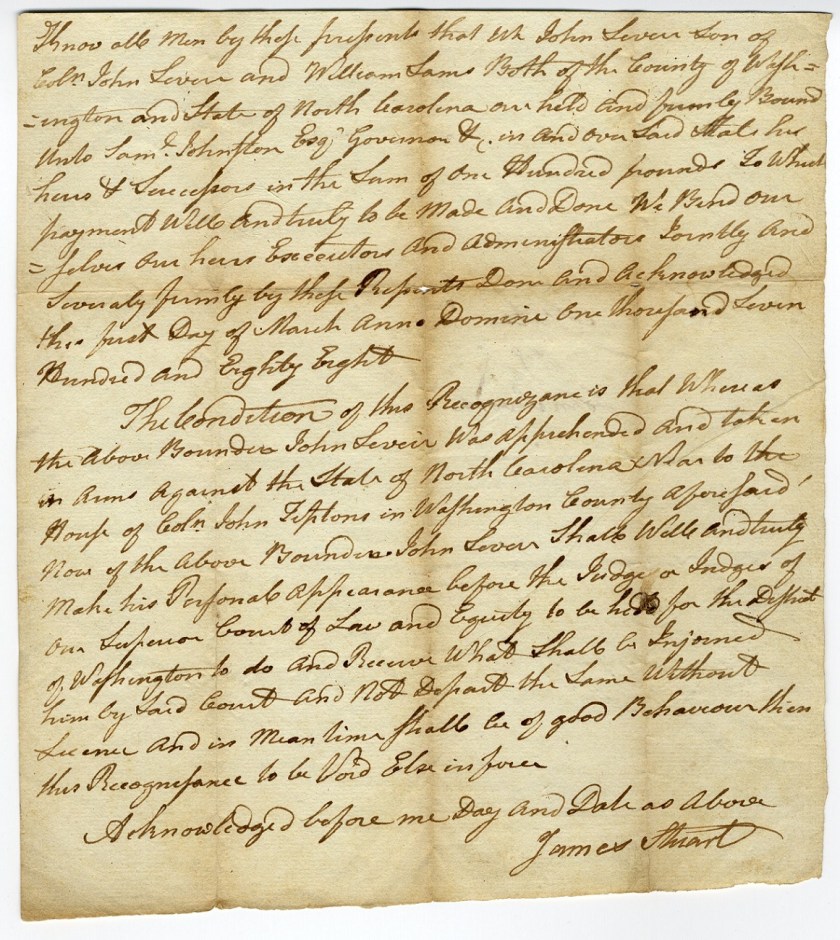 Know all Men by these presents that We John Sevier Son of
Coln. John Sevier and William Sams Both of the County of Wash=
=ington and State of North Carolina are held and firmly Bound
Unto Saml. Johnston Esqr. Governor &c. in and over Said State his
heirs & Successors in the Sum of One Hundred pounds To Which
payment Well and truly to be Made And Done We Bind our
=selves our heirs Executors And Administrators Jointly And
Severaly firmly by these Presents Done And Acknowledged
this first Day of March Anno Domine One thousand Seven
Hundred and Eighty Eight
The Condition of this Recognizance is that Whereas
the Above Bounden John Sevier Was apprehended and taken
in Arms Against the State of North Carolina Near to the
House of Coln. John Tiptons in Washington County Aforesaid
Now if the Above Bounden John Sevier Shall Well And truly
Make his Personal Appearance before the Judge or Judges of
Our Superior Court of Law and Equity to be held for the District
of Washington to do And Receive What Shall be Injoined
him by Said Court And Not Depart the Same Without
Licence And in Mean time Shall be of good Behaviour then
this Recognisance to be Void Else in force
Acknowledged before me Day And Date as Above
James Stuart